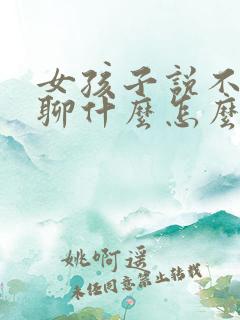 女孩子説不
聊什麼怎麼
姚啊遥
未经同意禁止转载